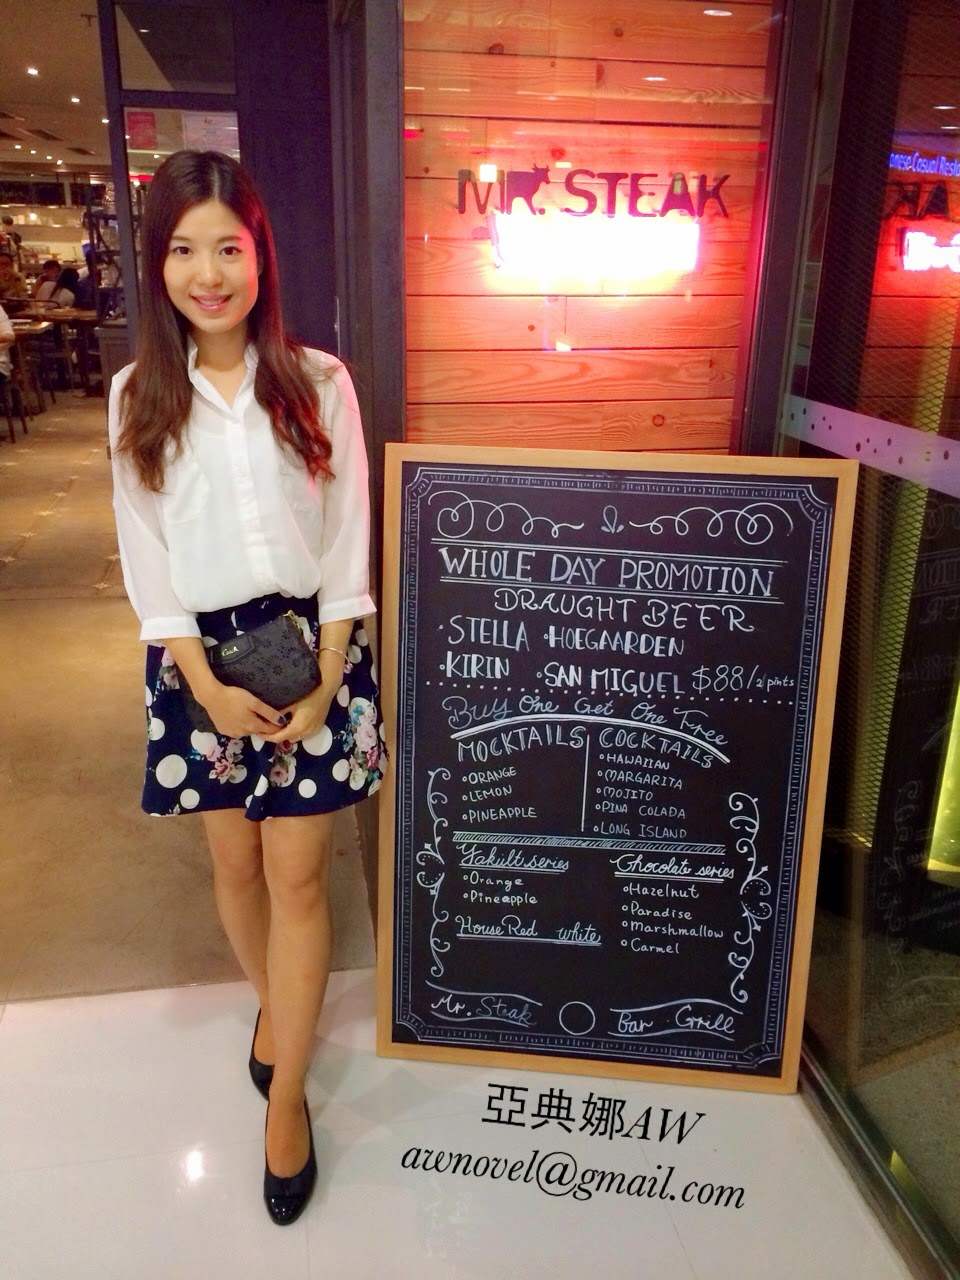 MR. STEAK
anese Casual Resta
WHOLE DAY PROMOTION
DRAUGHT BEER
·STELLA ·HOEGAARDEN
·KIRIN ·SAN MIGUEL $88/2 pints
Buy One Get One Free
MOCKTAILS
ORANGE
LEMON
PINEAPPLE
COCKTAILS
HAWAIIAN
MARGARITA
MOJITO
PINA COLADA
LONG ISLAND
Yakult series
Orange
Pineapple
House Red white
Chocolate series
Hazelnut
Paradise
Marshmallow
Carmel
Mr. Steak
Bar Grill
亞典娜AW
awnovel@gmail.com